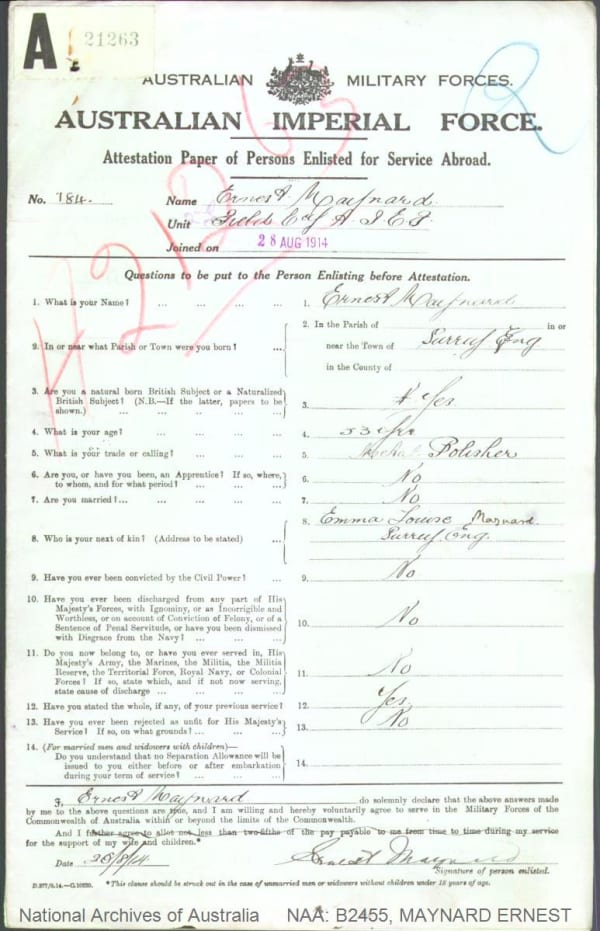 A 21263
AUSTRALIAN MILITARY FORCES.
AUSTRALIAN IMPERIAL FORCE.
Attestation Paper of Persons Enlisted for Service Abroad.
No. 184. Name Ernest Maynard.
Unit Field Coy A.I.E.F.
Joined on 28 AUG 1914
Questions to be put to the Person Enlisting before Attestation.
1. What is your Name? ... ... ... ... 1. Ernest Maynard
2. In or near what Parish or Town were you born? ... 2. In the Parish of in or
near the Town of Surrey Eng
in the County of
3. Are you a natural born British Subject or a Naturalized
British Subject? (N.B.—If the latter, papers to be
shown.) ... ... ... ... 3. Yes
4. What is your age? ... ... ... ... 4.
5. What is your trade or calling? ... ... ... 5. Polisher
6. Are you, or have you been, an Apprentice? If so, where,
to whom, and for what period? ... ... ... 6. No
7. Are you married?... ... ... ... 7. No
8. Who is your next of kin? (Address to be stated) ... 8. Emma Louise Maynard.
Surrey Eng.
9. Have you ever been convicted by the Civil Power? ... 9. No
10. Have you ever been discharged from any part of His
Majesty's Forces, with Ignominy, or as Incorrigible and
Worthless, or on account of Conviction of Felony, or of a
Sentence of Penal Servitude, or have you been dismissed
with Disgrace from the Navy? ... ... ... 10. No
11. Do you now belong to, or have you ever served in, His
Majesty's Army, the Marines, the Militia, the Militia
Reserve, the Territorial Force, Royal Navy, or Colonial
Forces? If so, state which, and if not now serving,
state cause of discharge ... ... ... ... 11. No
12. Have you stated the whole, if any, of your previous service? 12. Yes
13. Have you ever been rejected as unfit for His Majesty's
Service? If so, on what grounds? ... ... ... 13. No
14. (For married men and widowers with children)—
Do you understand that no Separation Allowance will be
issued to you either before or after embarkation
during your term of service? ... ... ... 14.
I, Ernest Maynard do solemnly declare that the above answers made
by me to the above questions are true, and I am willing and hereby voluntarily agree to serve in the Military Forces of the
Commonwealth of Australia within or beyond the limits of the Commonwealth.
And I further agree to allot not less than two-fifths of the pay payable to me from time to time during my service
for the support of my wife and children.*
Date 28/8/14 Ernest Maynard
Signature of person enlisted.
*This clause should be struck out in the case of unmarried men or widowers without children under 18 years of age.
National Archives of Australia NAA: B2455, MAYNARD ERNEST